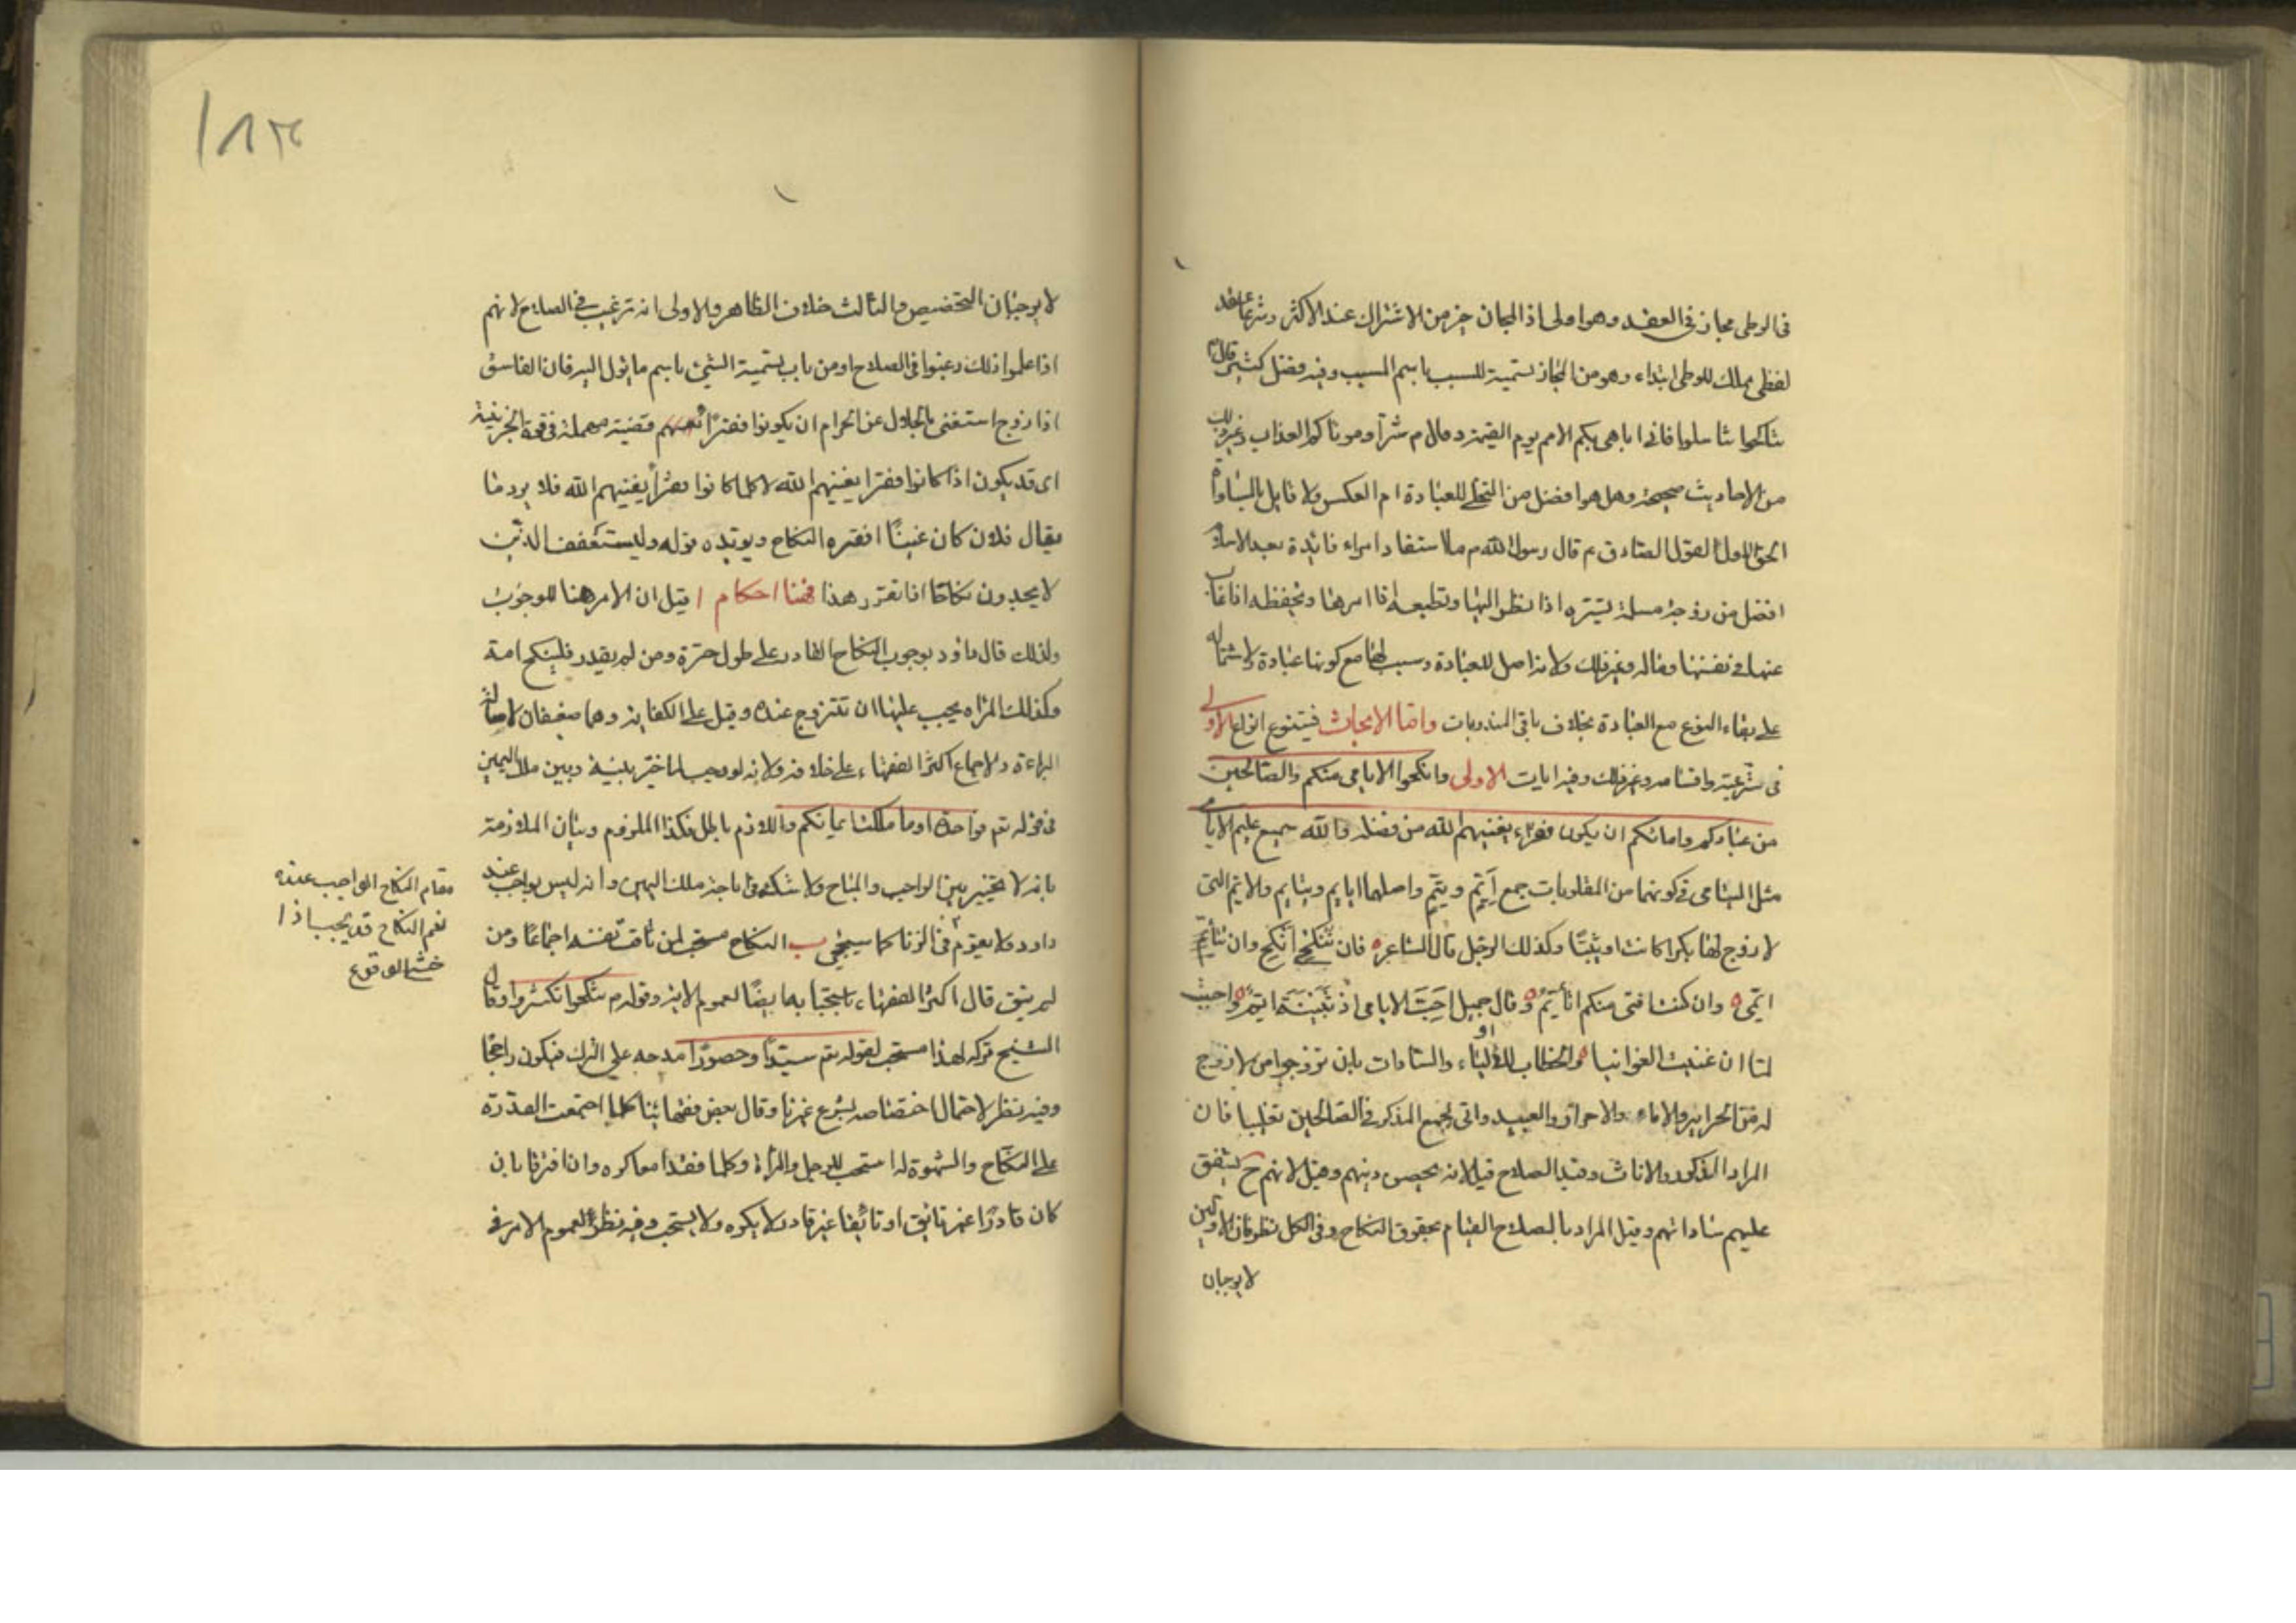 فى الوطى مجاز فى العقد وهو اولى اذ المجاز خير من الاشتراك عند الاكثر وشرعا عقد
لفظى مملك للوطى ابتداء وهو من المجاز تسمية للسبب باسم المسبب وفيه فضل كثير قال
تناكحوا تناسلوا فانى اباهى بكم الامم يوم القيمة وقال م شرار موتاكم العذاب وغير ذلك
من الاحاديث صحيحة وهل هو افضل من التخلى للعبادة ام العكس ولا قايل بالمساواة
الحق الاول لقول الصادق ع قال رسول الله م ما استفاد امرء فائدة بعد الاسلام
افضل من زوجة مسلمة تسره اذا نظر اليها وتطيعه اذا امرها وتحفظه اذا غاب
عنها فى نفسها وماله وغير ذلك ولانه اصل للعبادة وسبب لها مع كونها عبادة ولاشتماله
على بقاء النوع مع العبادة بخلاف باقى المندوبات واما الابحاث فيتنوع انواع الاولى
فى شرعيته واقسامه وغير ذلك وفيه ايات الاولى وانكحوا الايامى منكم والصالحين
من عبادكم وامائكم ان يكونوا فقراء يغنيهم الله من فضله والله سميع عليم الايامى
مثل اليتامى فى كونهما من المقلوبات جمع أيّم ويتيم واصلهما ايايم ويتايم والايم التى
لا زوج لها بكرا كانت او ثيبا وكذلك الرجل قال الشاعر فان تنكحى أنكح وان تتأيمى
اتيمى وان كنت افتى منكم اتأيم وقال جميل احب الايامى اذ بثينة ايم واحببت
لما ان غنيت الغوانيا والخطاب للاولياء والسادات بان تزوجوا من لا زوج
له من الحراير والاماء والاحرار والعبيد واتى بجمع المذكر فى الصالحين تغليبا فان
المراد الذكور والاناث وقيد الصلاح قيل لانه يحصن دينهم وقيل لانهم ح يشفق
عليهم ساداتهم وقيل المراد بالصلاح القيام بحقوق النكاح وفى الكل نظر فان الاولين
لا يوجبان
لا يوجبان التخصيص والثالث خلاف الظاهر والاولى انه ترغيب فى الصلاح لانهم
اذا علموا ذلك رغبوا فى الصلاح او من باب تسمية الشئ باسم ما يؤل اليه فان الفاسق
اذا زوج استغنى بالحلال عن الحرام ان يكونوا فقراء قضية مهملة فى قوة الجزئية
اى قد يكون اذا كانوا فقرا يغنيهم الله لا كلما كانوا فقرا يغنيهم الله فلا يرد ما
يقال فلان كان غنيا افقره النكاح ويؤيده قوله وليستعفف الذين
لا يجدون نكاحا اذا تقرر هذا فهنا احكام ا قيل ان الامر هنا للوجوب
ولذلك قال داود بوجوب النكاح للقادر على طول حرة ومن لم يقدر فلينكح امة
وكذلك المراة يجب عليها ان تتزوج عنده وقيل على الكفاية وهما ضعيفان لاصالة
البراءة ولاجماع اكثر الفقهاء على خلافه ولانه لو وجب لما خير بينه وبين ملك اليمين
فى قوله تع فواحدة او ما ملكت ايمانكم واللازم باطل فكذا الملزوم وبيان الملازمة
بانه لا تخيير بين الواجب والمباح ولا شك فى اباحة ملك اليمين وانه ليس بواجب عند
داود ولا يقوم مقام النكاح الواجب عنده
نعم النكاح قد يجب اذا
خشى الوقوع
فى الزنا كما سيجئ ب النكاح مستحب لمن تاقت نفسه اجماعا ومن
لم يتق قال اكثر الفقهاء باستحبابه ايضا لعموم الاية وقوله م تناكحوا تكثروا وقال
الشيخ تركه لهذا مستحب لقوله تع سيدا وحصورا مدحه على الترك فيكون راجحا
وفيه نظر لاحتمال اختصاصه بشرع غيرنا وقال بعض فقهائنا كلما اجتمعت القدرة
على النكاح والشهوة له استحب للرجل والمراة وكلما فقدا معا كره وان افترقا بان
كان قادرا غير تائق او تائقا غير قادر لا يكره ولا يستحب وفيه نظر لعموم الامر فى